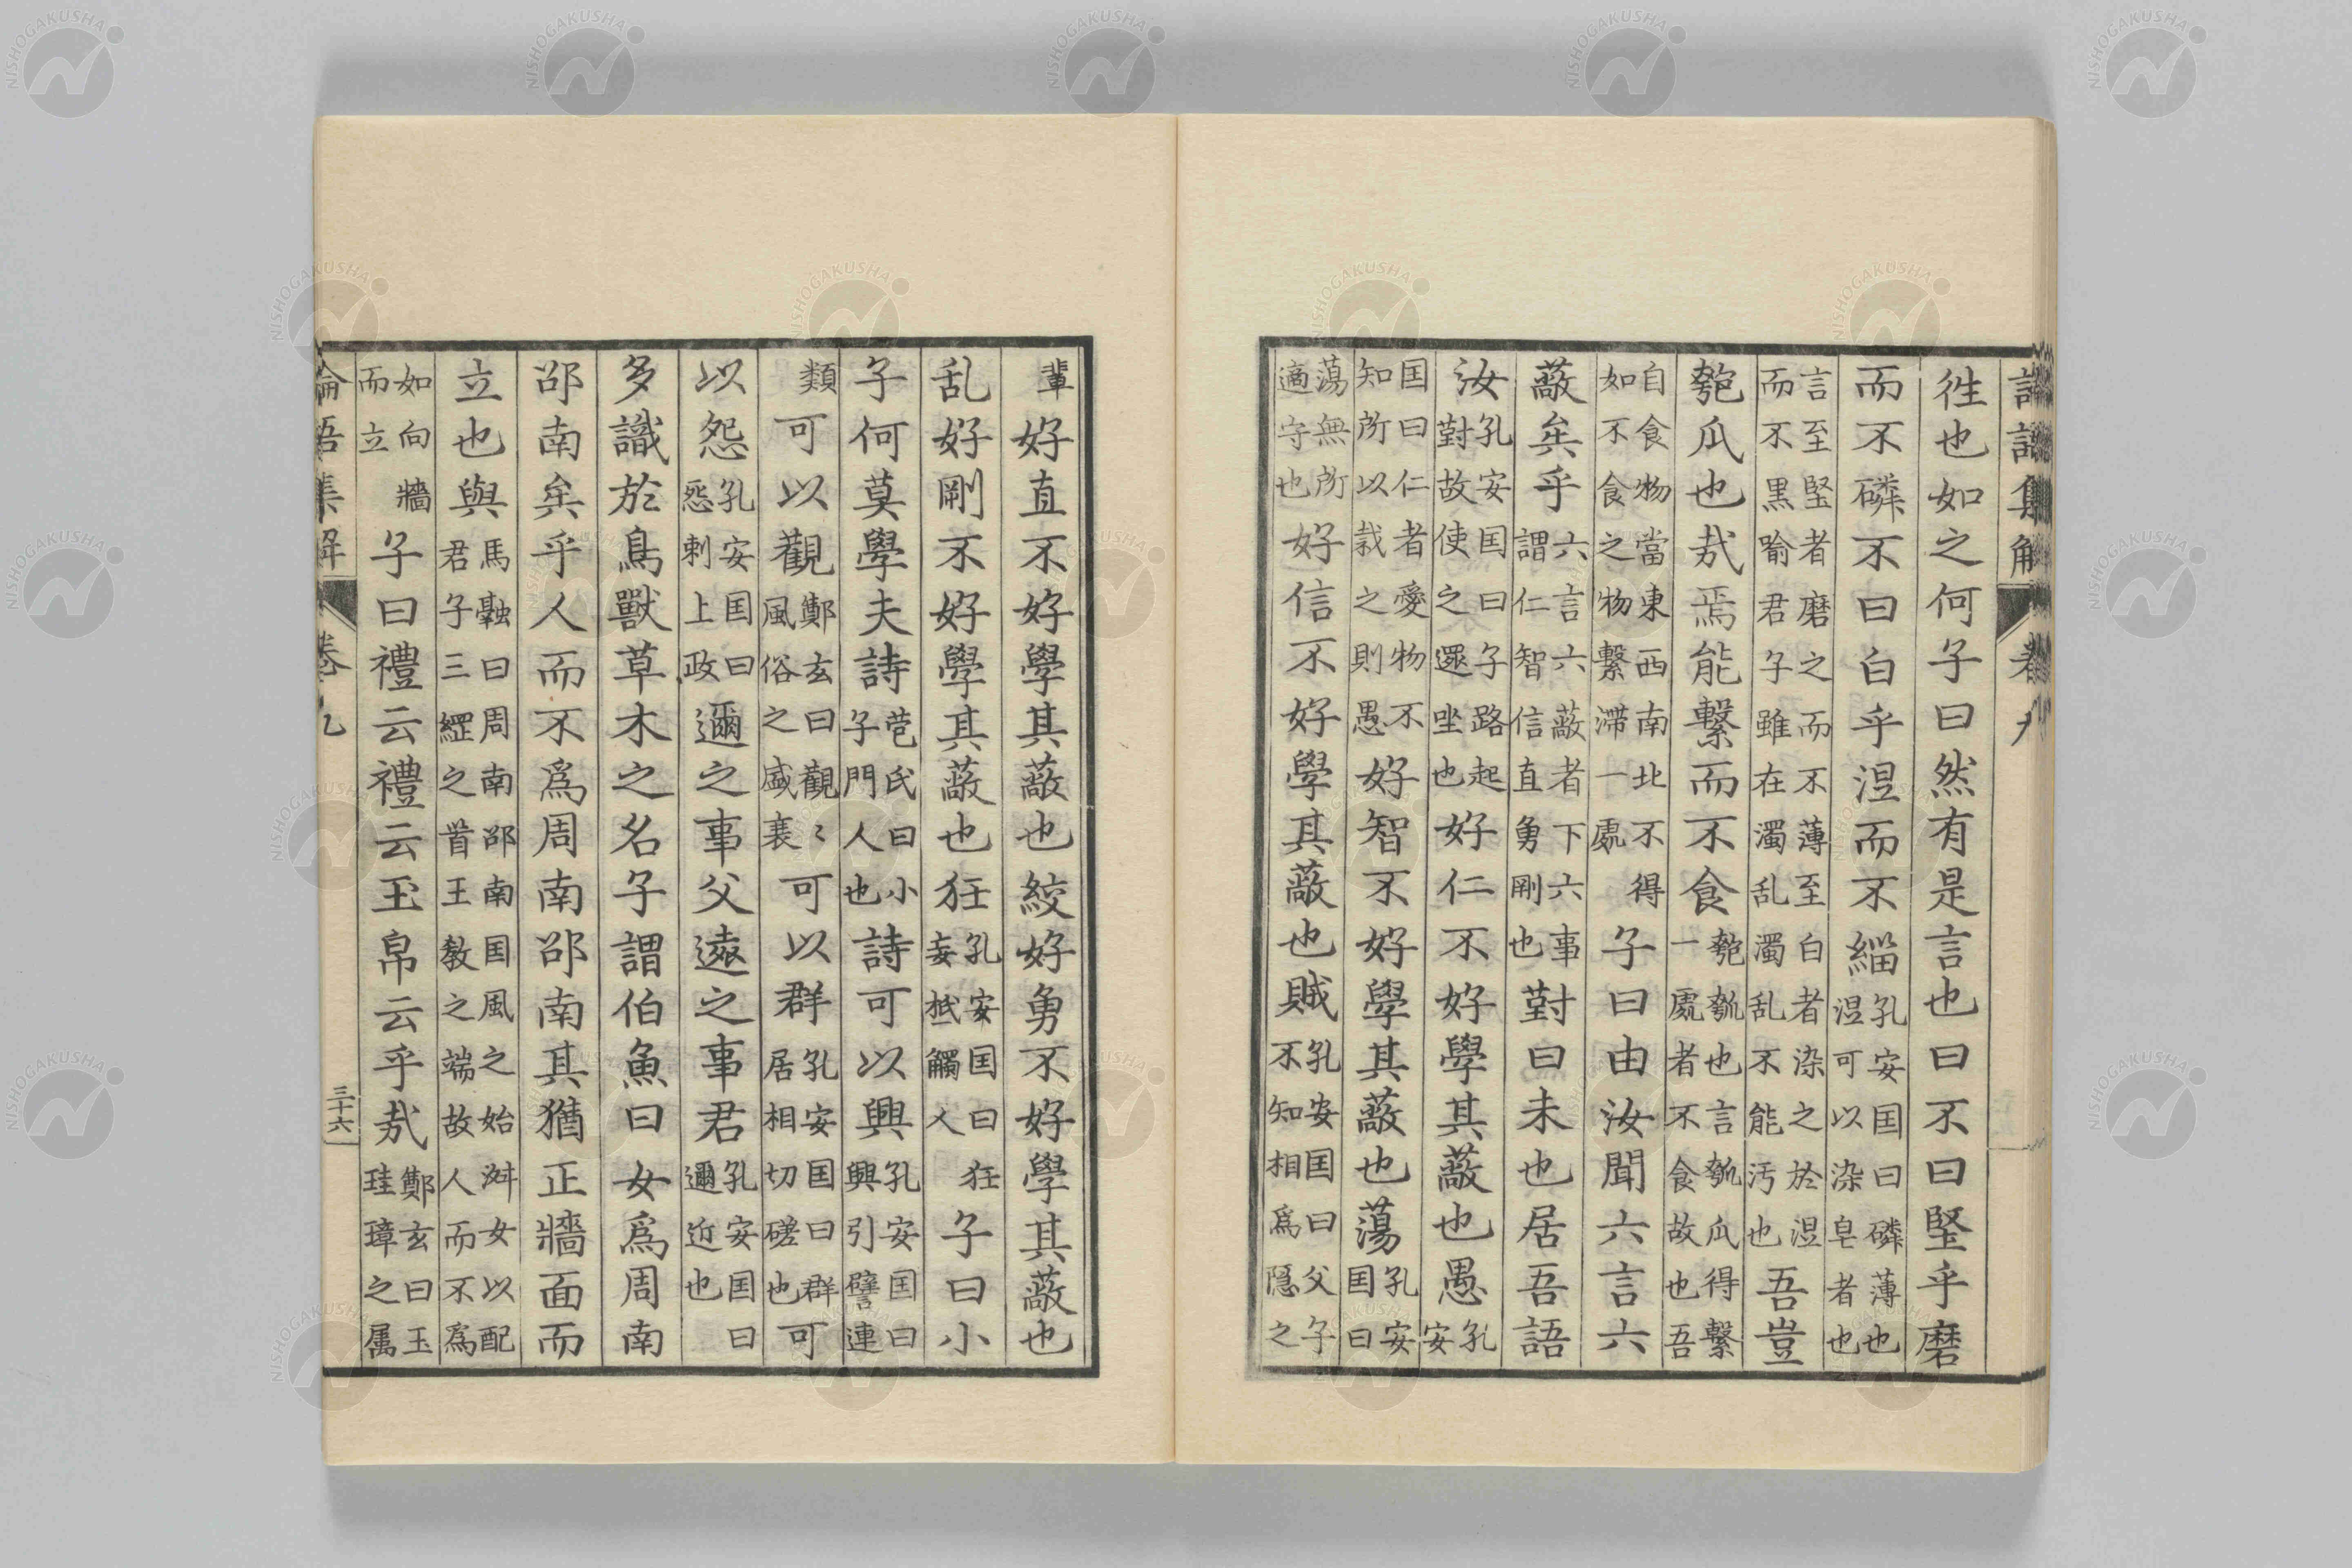 論語集解 卷九
徃也如之何子曰然有是言也曰不曰堅乎磨
而不磷不曰白乎湼而不緇孔安囯曰磷薄也湼可以染皂者也
言至堅者磨之而不薄至白者染之於湼而不黒喻君子雖在濁乱濁乱不能汚也吾豈
匏瓜也㢤焉能繫而不食匏瓠也言瓠瓜得繫一處者不食故也吾
自食物當東西南北不得如不食之物繫滯一處子曰由汝聞六言六
蔽矣乎六言六蔽者下六事謂仁智信直勇剛也對曰未也居吾語
汝孔安囯曰子路起對故使之還坐也好仁不好學其蔽也愚孔安
囯曰仁者愛物不知所以裁之則愚好智不好學其蔽也蕩孔安囯曰
蕩無所適守也好信不好學其蔽也賊孔安囯曰父子不知相爲隱之
輩好直不好學其蔽也絞好勇不好學其蔽也
乱好剛不好學其蔽也狂孔安囯曰狂妄抵觸人子曰小
子何莫學夫詩苞氏曰小子門人也詩可以興孔安囯曰興引譬連
類可以觀鄭玄曰觀〻風俗之盛衰可以群孔安囯曰群居相切磋也可
以怨孔安囯曰怨刺上政邇之事父遠之事君孔安囯曰邇近也
多識於鳥獸草木之名子謂伯魚曰女爲周南
邵南矣乎人而不爲周南邵南其猶正牆面而
立也與馬融曰周南邵南囯風之始淑女以配君子三綱之首王教之端故人而不爲
如向牆而立子曰禮云禮云玉帛云乎㢤鄭玄曰玉珪璋之属
論語集解 卷九 三十六
NISHOGAKUSHA